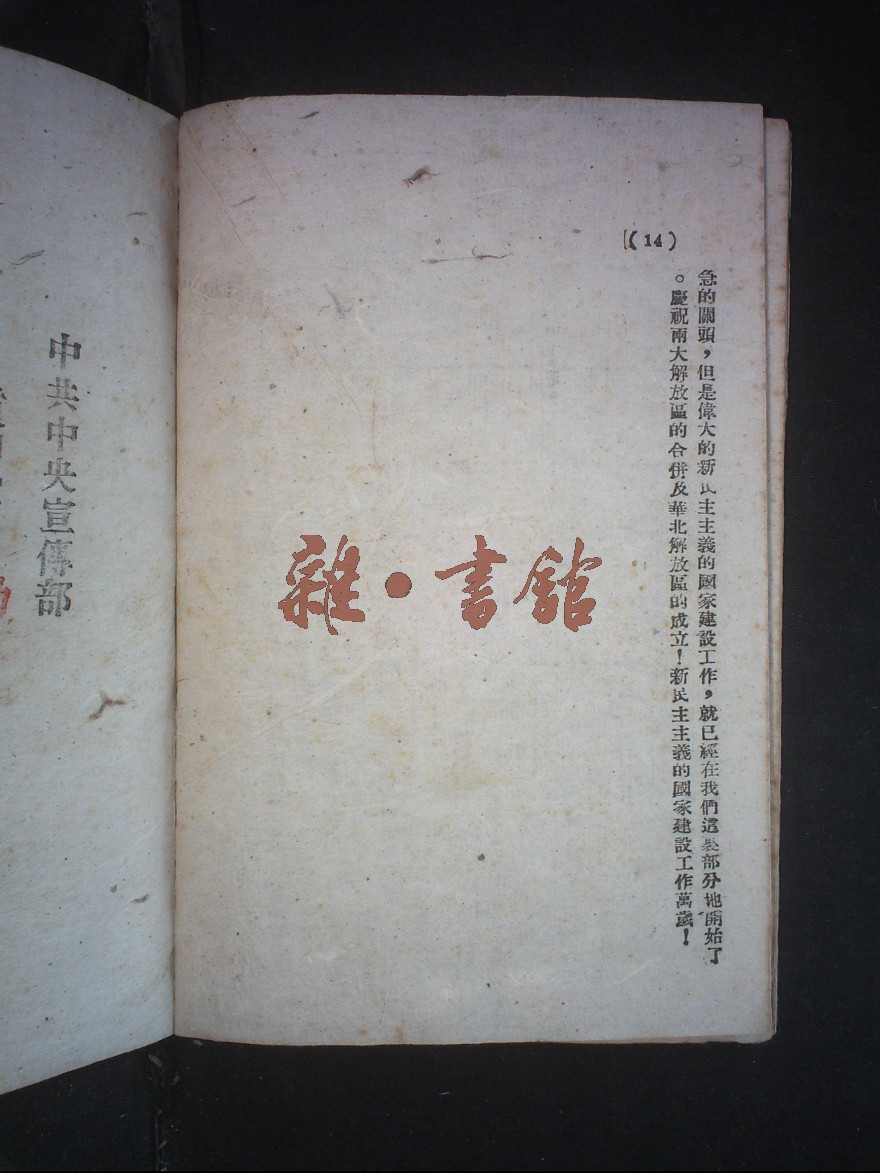 (14)
急的關頭，但是偉大的新民主主義的國家建設工作，就已經在我們這裏部分地開始了
。慶祝兩大解放區的合併及華北解放區的成立！新民主主義的國家建設工作萬歲！
雜·書館
中共中央宣傳部